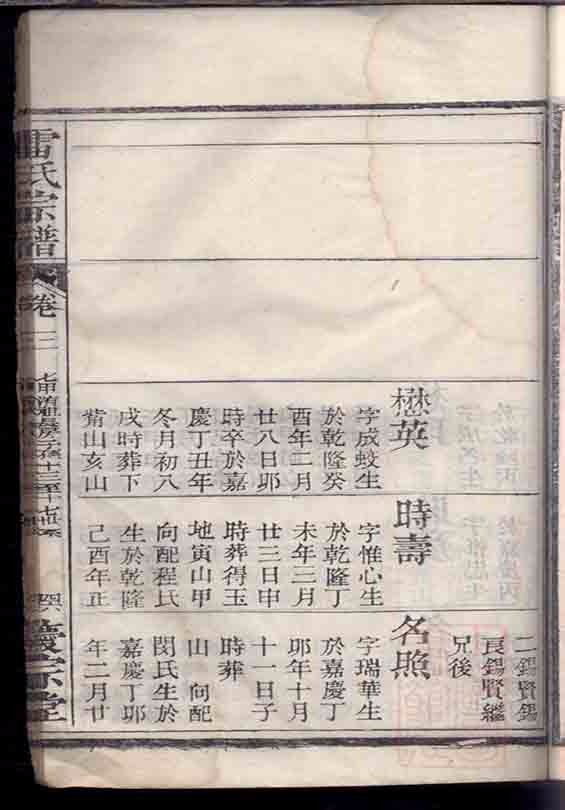 懋英
字成蛟生
於乾隆癸
酉年二月
廿八日卯
時卒於嘉
慶丁丑年
冬月初八
戌時葬下
觜山亥山
時壽
字惟心生
於乾隆丁
未年三月
廿三日申
時葬得玉
地寅山甲
向配程氏
生於乾隆
己酉年正
二錫賢錫
良錫賢繼
兄後
名照
字瑞華生
於嘉慶丁
卯年十月
十一日子
時葬
山 向配
閔氏生於
嘉慶丁卯
年二月廿
雷氏宗譜
卷三
堂